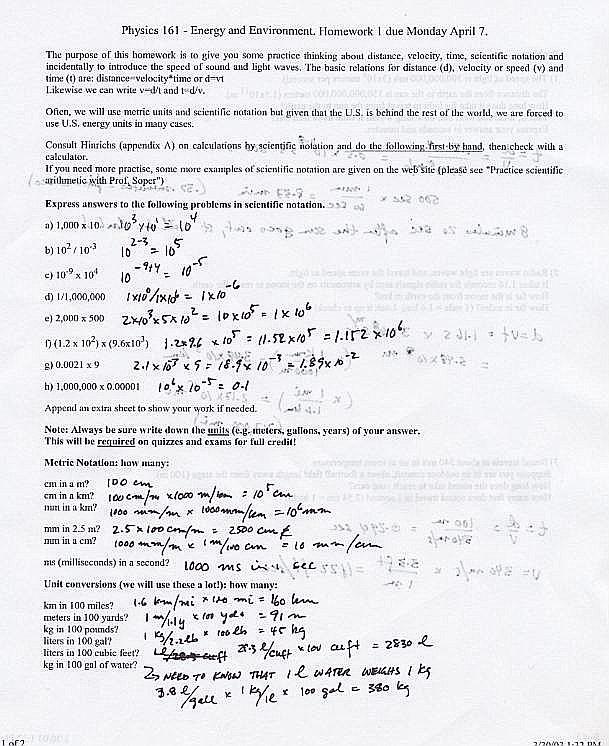 Physics 161 - Energy and Environment. Homework 1 due Monday April 7.
The purpose of this homework is to give you some practice thinking about distance, velocity, time, scientific notation and
incidentally to introduce the speed of sound and light waves. The basic relations for distance (d), velocity or speed (v) and
time (t) are: distance=velocity*time or d=vt
Likewise we can write v=d/t and t=d/v.
Often, we will use metric units and scientific notation but given that the U.S. is behind the rest of the world, we are forced to
use U.S. energy units in many cases.
Consult Hinrichs (appendix A) on calculations by scientific notation and do the following first by hand, then check with a
calculator.
If you need more practise, some more examples of scientific notation are given on the web site (please see "Practice scientific
arithmetic with Prof. Soper")
Express answers to the following problems in scientific notation.
a) 1,000 x 10 10^3 = 10^4
b) 10^2 / 10^-3 10^2-3 = 10^5
c) 10^-9 x 10^4 10^-9+4 = 10^-5
d) 1/1,000,000 1x10^0/1x10^6 = 1x10^-6
e) 2,000 x 500 2x10^3x5x10^2 = 10x10^5 = 1x10^6
f) (1.2 x 10^2) x (9.6x10^3) 1.2x9.6 x 10^5 = 11.52x10^5 = 1.152 x 10^6
g) 0.0021 x 9 2.1x10^-3 x 9 = 18.9x10^-3 = 1.89x10^-2
h) 1,000,000 x 0.00001 10^6 x 10^-5 = 0.1
Append an extra sheet to show your work if needed.
Note: Always be sure write down the units (e.g. meters, gallons, years) of your answer.
This will be required on quizzes and exams for full credit!
Metric Notation: how many:
cm in a m? 100 cm
cm in a km? 100 cm/m x1000 m/km = 10^5 cm
mm in a km? 1000 mm/m x 1000 m/km = 10^6 mm
mm in 2.5 m? 2.5 x 100 cm/m = 2500 cm
mm in a cm? 1000 mm/m x 1m/100 cm = 10 mm/cm
ms (milliseconds) in a second? 1000 ms in 1 sec
Unit conversions (we will use these a lot!): how many:
km in 100 miles? 1.6 km/mi x 100 mi = 160 km
meters in 100 yards? 1 m/1.1y x 100 yds = 91 m
kg in 100 pounds? 1 kg/2.2lb x 100 lbs = 45 kg
liters in 100 gal?
liters in 100 cubic feet? 28.3 l/cuft x 100 cuft = 2830 l
kg in 100 gal of water? NEED TO KNOW THAT 1 l WATER WEIGHS 1 kg
3.8 l/gall x 1 kg/l x 100 gal = 380 kg
1 of 2